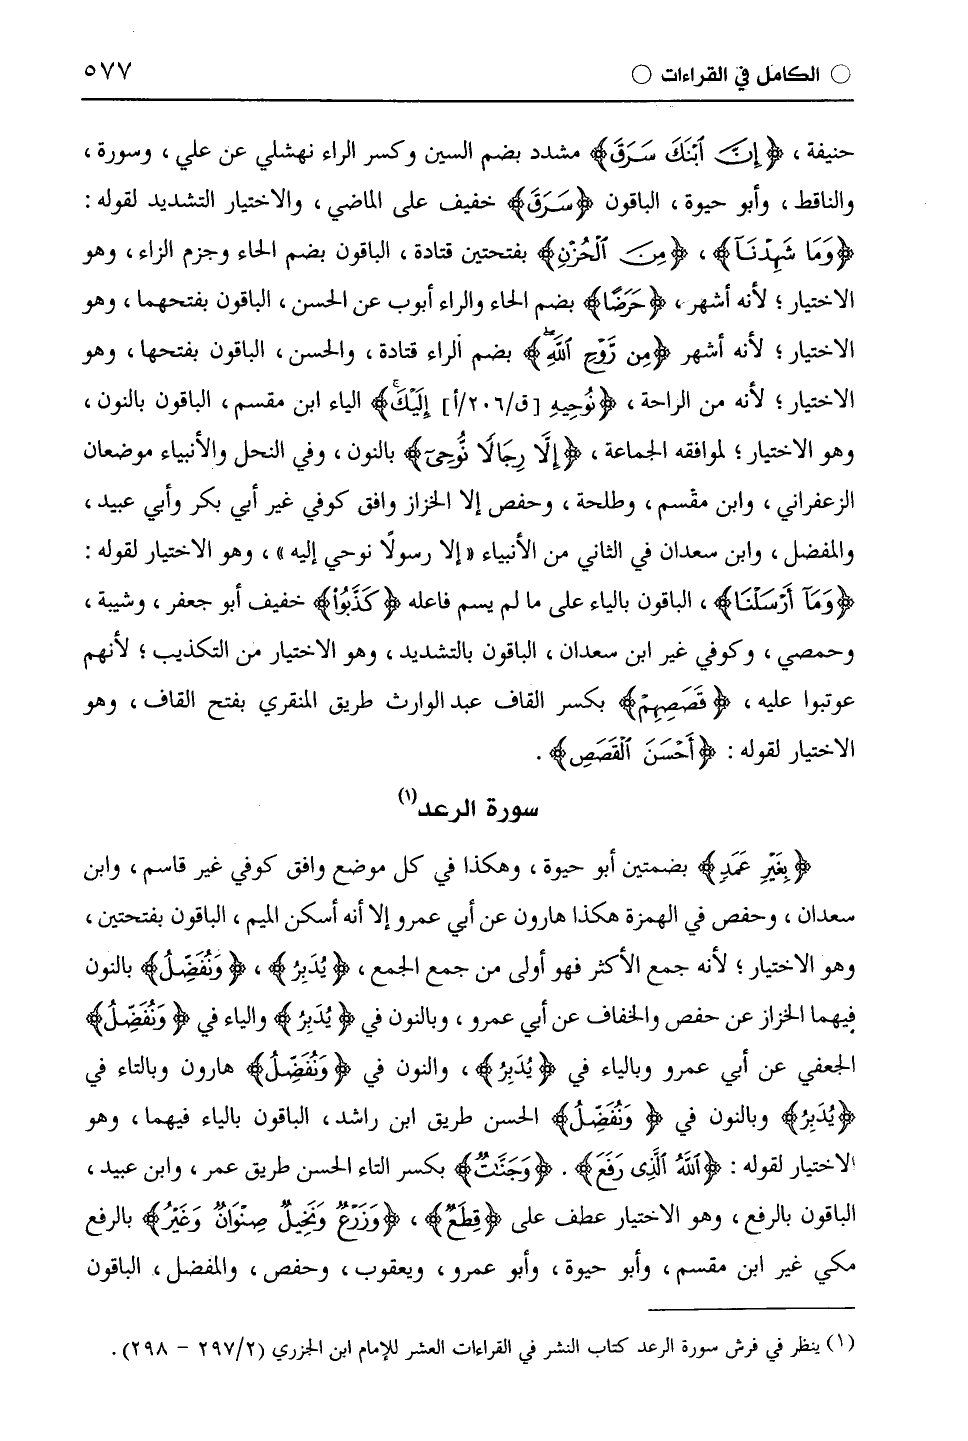 ○ الكامل في القراءات ○ ٥٧٧
حنيفة ، ﴿إِنَّ ٱبْنَكَ سَرَقَ﴾ مشدد بضم السين وكسر الراء نهشلي عن علي ، وسورة ،
والناقط ، وأبو حيوة ، الباقون ﴿سَرَقَ﴾ خفيف على الماضي ، والاختيار التشديد لقوله :
﴿وَمَا شَهِدْنَآ﴾ ، ﴿مِنَ ٱلْحُزْنِ﴾ بفتحتين قتادة ، الباقون بضم الحاء وجزم الزاء ، وهو
الاختيار ؛ لأنه أشهر ، ﴿حَرَضًا﴾ بضم الحاء والراء أبوب عن الحسن ، الباقون بفتحهما ، وهو
الاختيار ؛ لأنه أشهر ﴿مِن رَّوْحِ ٱللَّهِۖ﴾ بضم الراء قتادة ، والحسن ، الباقون بفتحها ، وهو
الاختيار ؛ لأنه من الراحة ، ﴿نُوحِيهِ [ق/٢٠٦/أ] إِلَيْكَۖ﴾ الياء ابن مقسم ، الباقون بالنون ،
وهو الاختيار ؛ لموافقه الجماعة ، ﴿إِلَّا رِجَالًا نُّوحِىٓ﴾ بالنون ، وفي النحل والأنبياء موضعان
الزعفراني ، وابن مقْسم ، وطلحة ، وحفص إلا الخزاز وافق كوفي غير أبي بكر وأبي عبيد ،
والمفضل ، وابن سعدان في الثاني من الأنبياء «إلا رسولًا نوحي إليه» ، وهو الاختيار لقوله :
﴿وَمَآ أَرْسَلْنَا﴾ ، الباقون بالياء على ما لم يسم فاعله ﴿كَذَّبُوا۟﴾ خفيف أبو جعفر ، وشيبة ،
وحمصي ، وكوفي غير ابن سعدان ، الباقون بالتشديد ، وهو الاختيار من التكذيب ؛ لأنهم
عوتبوا عليه ، ﴿قَصَصِهِمْ﴾ بكسر القاف عبد الوارث طريق المنقري بفتح القاف ، وهو
الاختيار لقوله : ﴿أَحْسَنَ ٱلْقَصَصِ﴾ .
سورة الرعد(١)
﴿بِغَيْرِ عَمَدٍ﴾ بضمتين أبو حيوة ، وهكذا في كل موضع وافق كوفي غير قاسم ، وابن
سعدان ، وحفص في الهمزة هكذا هارون عن أبي عمرو إلا أنه أسكن الميم ، الباقون بفتحتين ،
وهو الاختيار ؛ لأنه جمع الأكثر فهو أولى من جمع الجمع ، ﴿يُدَبِّرُ﴾ ، ﴿وَنُفَضِّلُ﴾ بالنون
فيهما الخزاز عن حفص والخفاف عن أبي عمرو ، وبالنون في ﴿يُدَبِّرُ﴾ والياء في ﴿وَنُفَضِّلُ﴾
الجعفي عن أبي عمرو وبالياء في ﴿يُدَبِّرُ﴾ ، والنون في ﴿وَنُفَضِّلُ﴾ هارون وبالتاء في
﴿يُدَبِّرُ﴾ وبالنون في ﴿وَنُفَضِّلُ﴾ الحسن طريق ابن راشد ، الباقون بالياء فيهما ، وهو
الاختيار لقوله : ﴿ٱللَّهُ ٱلَّذِى رَفَعَ﴾ . ﴿وَجَنَّـٰتٌ﴾ بكسر التاء الحسن طريق عمر ، وابن عبيد ،
الباقون بالرفع ، وهو الاختيار عطف على ﴿قِطَعٌ﴾ ، ﴿وَزَرْعٌ وَنَخِيلٌ صِنْوَانٌ وَغَيْرُ﴾ بالرفع
مكي غير ابن مقسم ، وأبو حيوة ، وأبو عمرو ، ويعقوب ، وحفص ، والمفضل ، الباقون
(١) ينظر في فرش سورة الرعد كتاب النشر في القراءات العشر للإمام ابن الجزري (٢/ ٢٩٧ – ٢٩٨) .